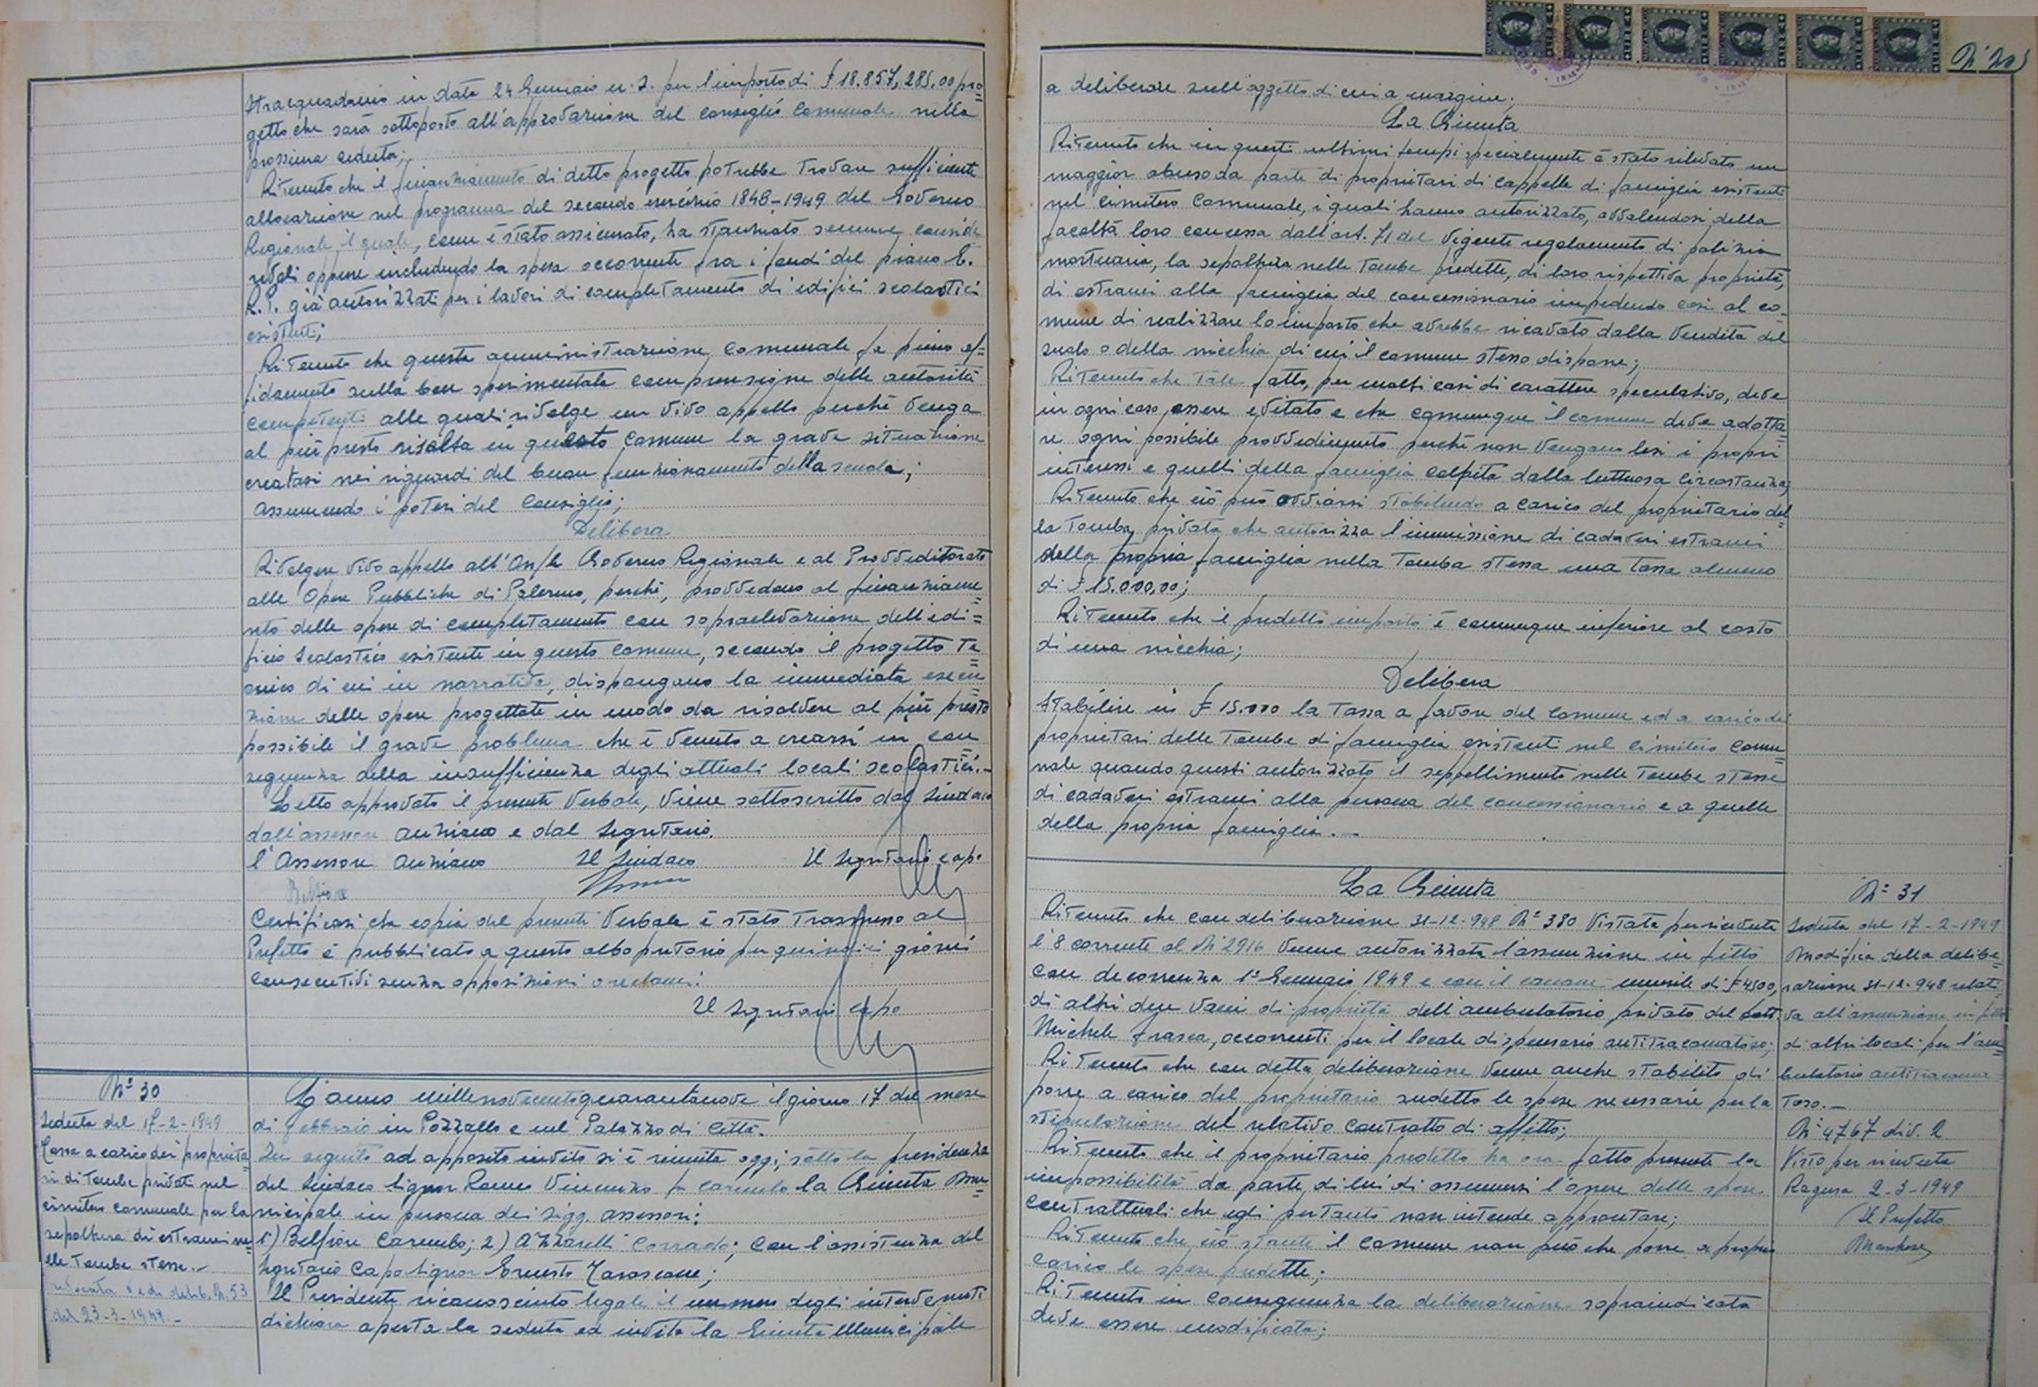 Stracquadanio in data 24 Gennaio u.s. per l'importo di £ 18.857,285.00 pro=
getto che sarà sottoposto all'approvazione del consiglio Comunale nella
prossima seduta;
Ritenuto che il finanziamento di detto progetto potrebbe trovare sufficiente
allocazione nel programma del secondo esercizio 1848-1949 del Governo
Regionale il quale, come è stato assicurato, ha stanziato somme conside
revoli oppure includendo la spesa occorrente fra i fondi del piano E.
R.P. già autorizzati per i lavori di completamento di edifici scolastici
esistenti;
Ritenuto che questa amministrazione comunale fa pieno af=
fidamento sulla ben sperimentata comprensione delle autorità
competenti alle quali rivolge un vivo appello perché venga
al più presto risolta in questo comune la grave situazione
creatasi nei riguardi del buon funzionamento della scuola;
Assumendo i poteri del Consiglio;
Delibera
Rivolgere vivo appello all'On/le Governo Regionale e al Provveditorato
alle Opere Pubbliche di Palermo, perché, provvedano al finanziame
nto delle opere di completamento con sopraelevazione dell'edi=
ficio scolastico esistente in questo comune, secondo il progetto te=
cnico di cui in narrativa, dispongano la immediata esecu
zione delle opere progettate in modo da risolvere al più presto
possibile il grave problema che è venuto a crearsi in con
seguenza della insufficienza degli attuali locali scolastici.-
Letto approvato il presente verbale, viene sottoscritto dal Sindaco
dall'assessore anziano e dal Segretario.
L'Assessore Anziano Il Sindaco Il Segretario capo
Belfiore
Certificasi che copia del presente verbale è stato trasmesso al
Prefetto e pubblicato a questo albo pretorio per quindici giorni
consecutivi senza opposizioni o reclami.
Il Segretario capo
N° 30
Seduta del 17-2-1949
Tassa a carico dei proprieta=
ri di tombe private nel
cimitero comunale per la
sepoltura di estranei ne=
lle tombe stesse.-
revocata vedi delib. N. 53
del 23-3-1949.-
L'anno millenovecentoquarantanove il giorno 17 del mese
di febbraio in Pozzallo e nel Palazzo di Città.
In seguito ad apposito invito si è riunita oggi, sotto la presidenza
del Sindaco Signor Romeo Vincenzo fu Carmelo la Giunta Mu=
nicipale in persona dei Sigg. assessori:
1) Belfiore Carmelo; 2) Azzarelli Corrado; con l'assistenza del
Segretario Capo Signor Ernesto
Il Presidente riconosciuto legale il numero degli intervenuti
dichiara aperta la seduta ed invita la Giunta Municipale
a deliberare sull'oggetto di cui a margine.
La Giunta
Ritenuto che in questi ultimi tempi specialmente è stato rilevato un
maggior abuso da parte di proprietari di cappelle di famiglia esistenti
nel cimitero Comunale, i quali hanno autorizzato, avvalendosi della
facoltà loro concessa dall'art. 71 del vigente regolamento di polizia
mortuaria, la sepoltura nelle tombe predette, di loro rispettiva proprietà,
di estranei alla famiglia del concessionario impedendo così al co=
mune di realizzare lo importo che avrebbe ricavato dalla vendita del
suolo o della nicchia di cui il comune stesso dispone;
Ritenuto che tale fatto, per molti casi di carattere speculativo, deve
in ogni caso essere evitato e che comunque il comune deve adotta=
re ogni possibile provvedimento perché non vengano lesi i propri
interessi e quelli della famiglia colpita dalla luttuosa circostanza;
Ritenuto che ciò può ovviarsi stabilendo a carico del proprietario del=
la tomba privata che autorizza l'immissione di cadaveri estranei
della propria famiglia nella tomba stessa una tassa almeno
di £ 15.000,00;
Ritenuto che il predetto importo è comunque inferiore al costo
di una nicchia;
Delibera
Stabilire in £ 15.000 la tassa a favore del comune ed a carico dei
proprietari delle tombe di famiglia esistenti nel cimitero comu=
nale quando questi autorizzato il seppellimento nelle tombe stesse
di cadaveri estranei alla persona del concessionario e a quelle
della propria famiglia.-
La Giunta
Ritenuto che con deliberazione 31-12-948 N° 380 vistata per ricevuta
l'8 corrente al N° 2916 venne autorizzata l'assunzione in fitto
con decorrenza 1° Gennaio 1949 e con il canone mensile di £ 4500,
di altri due vani di proprietà dell'ambulatorio privato del Dott.
Michele Frasca, occorrenti per il locale dispensario antitracomatoso;
Ritenuto che con detta deliberazione venne anche stabilito di
porre a carico del proprietario sudetto le spese necessarie per la
stipulazione del relativo contratto di affitto;
Ritenuto che il proprietario predetto ha ora fatto presente la
impossibilità da parte di lui di assumersi l'onere delle spese
contrattuali che egli pertanto non intende approntare;
Ritenuto che ciò stante il comune non può che porre a proprio
carico le spese predette;
Ritenuto in conseguenza la deliberazione sopraindicata
deve essere modificata;
N° 31
Seduta del 17-2-1949
Modifica della delibe=
razione 31-12-948 relati=
va all'assunzione in fitto
di altri locali per l'am=
bulatorio antitracoma=
toso.-
N° 4767 div. 2
Visto per ricevuta
Ragusa 2-3-1949
Il Prefetto